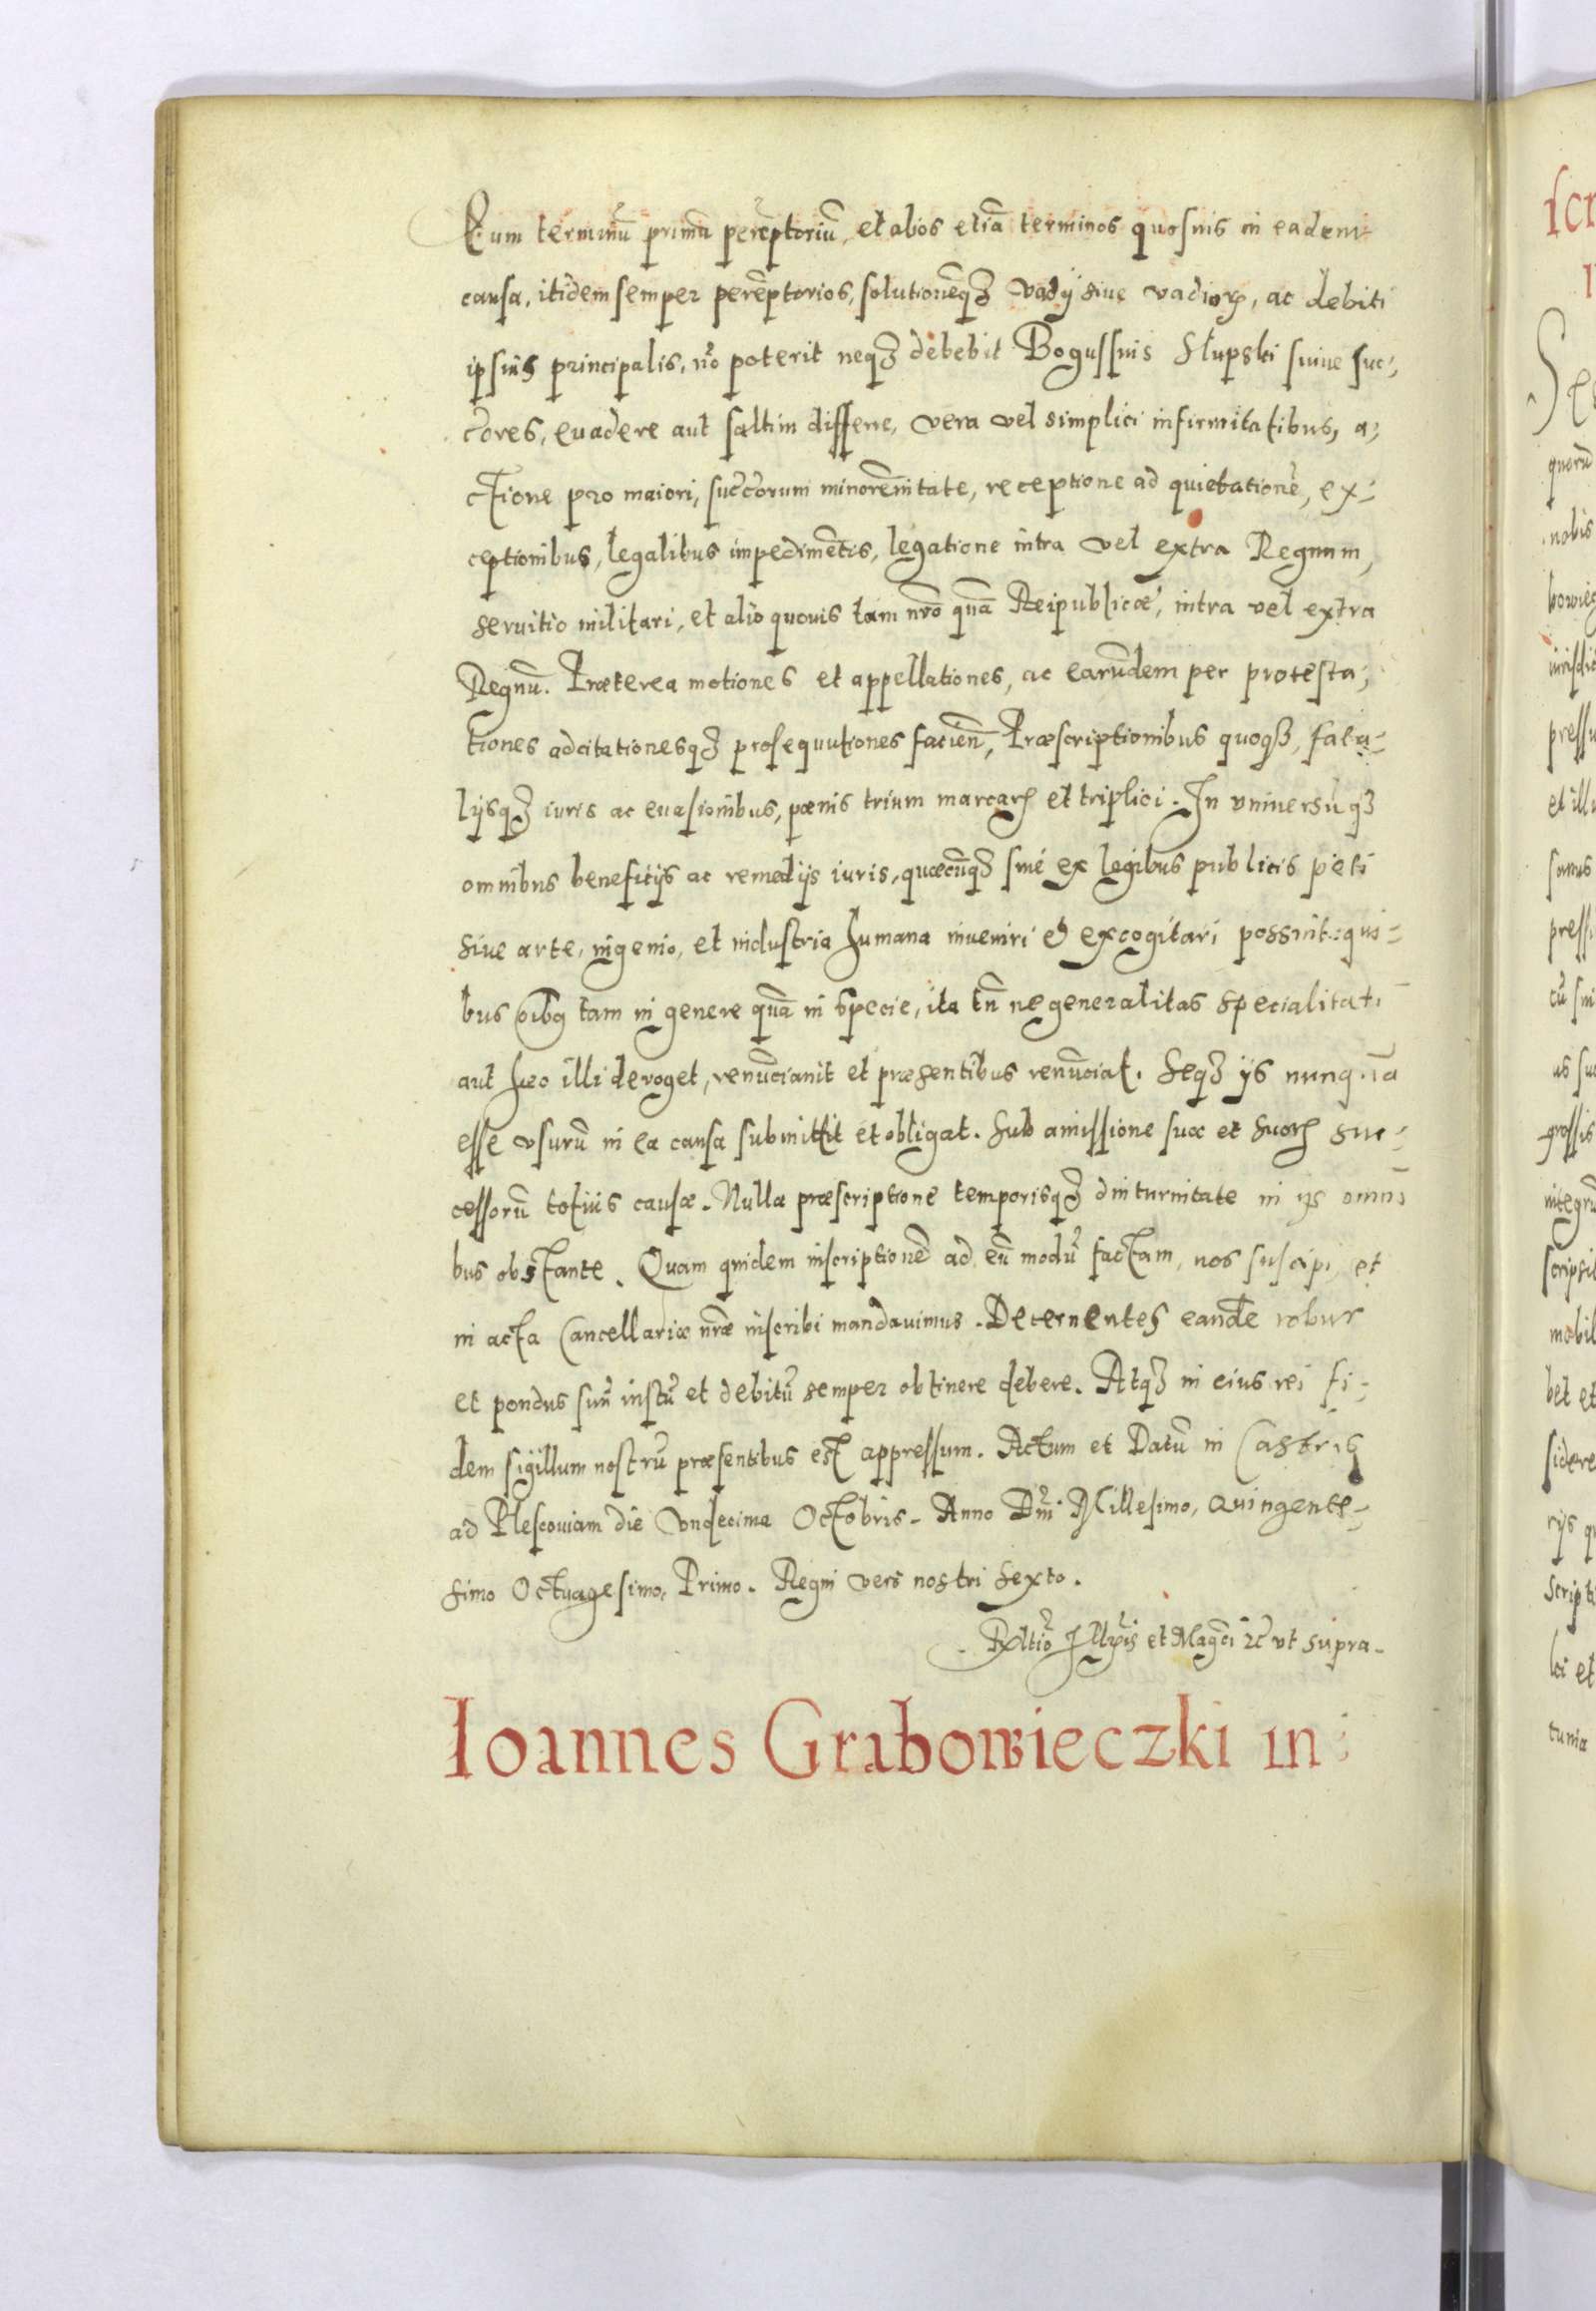 Eum terminũ primũ perẽptoriũ, et alios etiã terminos quosuis in eadem
causa, itidem semper perẽptorios, solutionẽq3 vadÿ siue vadiorꝝ, ac debiti
ipsius principalis, nõ poterit neq3 debebit Bogussius Słupski suiue suc⸗
c̃ores, euadere aut saltim differre, vera vel simplici infirmitatibus, a⸗
ctione pro maiori, succ̃orum minorẽnitate, receptione ad quietationẽ, ex⸗
ceptionibus, legalibus impedimẽtis, legatione intra vel extra Regnum,
seruitio militari, et alio quouis tam nr̃o quã Reipublicæ, intra vel extra
Regnũ. Præterea motiones et appellationes, ac earũdem per protesta⸗
tiones adcitationesq3 prosequutiones facień, Præscriptionibus quoq3, fata⸗
lijsq3 iuris ac euasionibus, pœnis trium marcarꝝ et triplici. In vniuersũq3
omnibus beneficijs ac remedijs iuris, quæcũq3 siue ex legibus publicis peti
siue arte, ingenio, et industria humana inueniri et excogitari possint: qui⸗
bus oĩbꝫ tam in genere quã in specie, ita tñ ne generalitas specialitati
aut hæc illi deroget, renũciauit et præsentibus renũciat. Seq3 ijs nunquã
esse vsurũ in ea causa submittit et obligat. Sub amissione suæ et suorꝝ suc⸗
cessorũ totius causæ. Nulla præscriptione temporisq3 diuturnitate in ijs omni
bus obstante. Quam quidem inscriptionẽ ad eũ modũ factam, nos suscipi et
in acta Cancellariæ nr̃æ inscribi mandauimus. Decernentes eandẽ robur
et pondus suũ iustũ et debitũ semper obtinere debere. Atq3 in eius rei fi⸗
dem sigillum nostrũ præsentibus est appressum. Actum et Datũ in Castris
ad Plescouiam die vndecima Octobris. Anno Dñi Millesimo, Quingente⸗
simo Octuagesimo, Primo. Regni vero nostri sexto.
Rltio Illr̃is et Magc̃i zc̃ vt supra.
Ioannes Grabowieczki in⸗